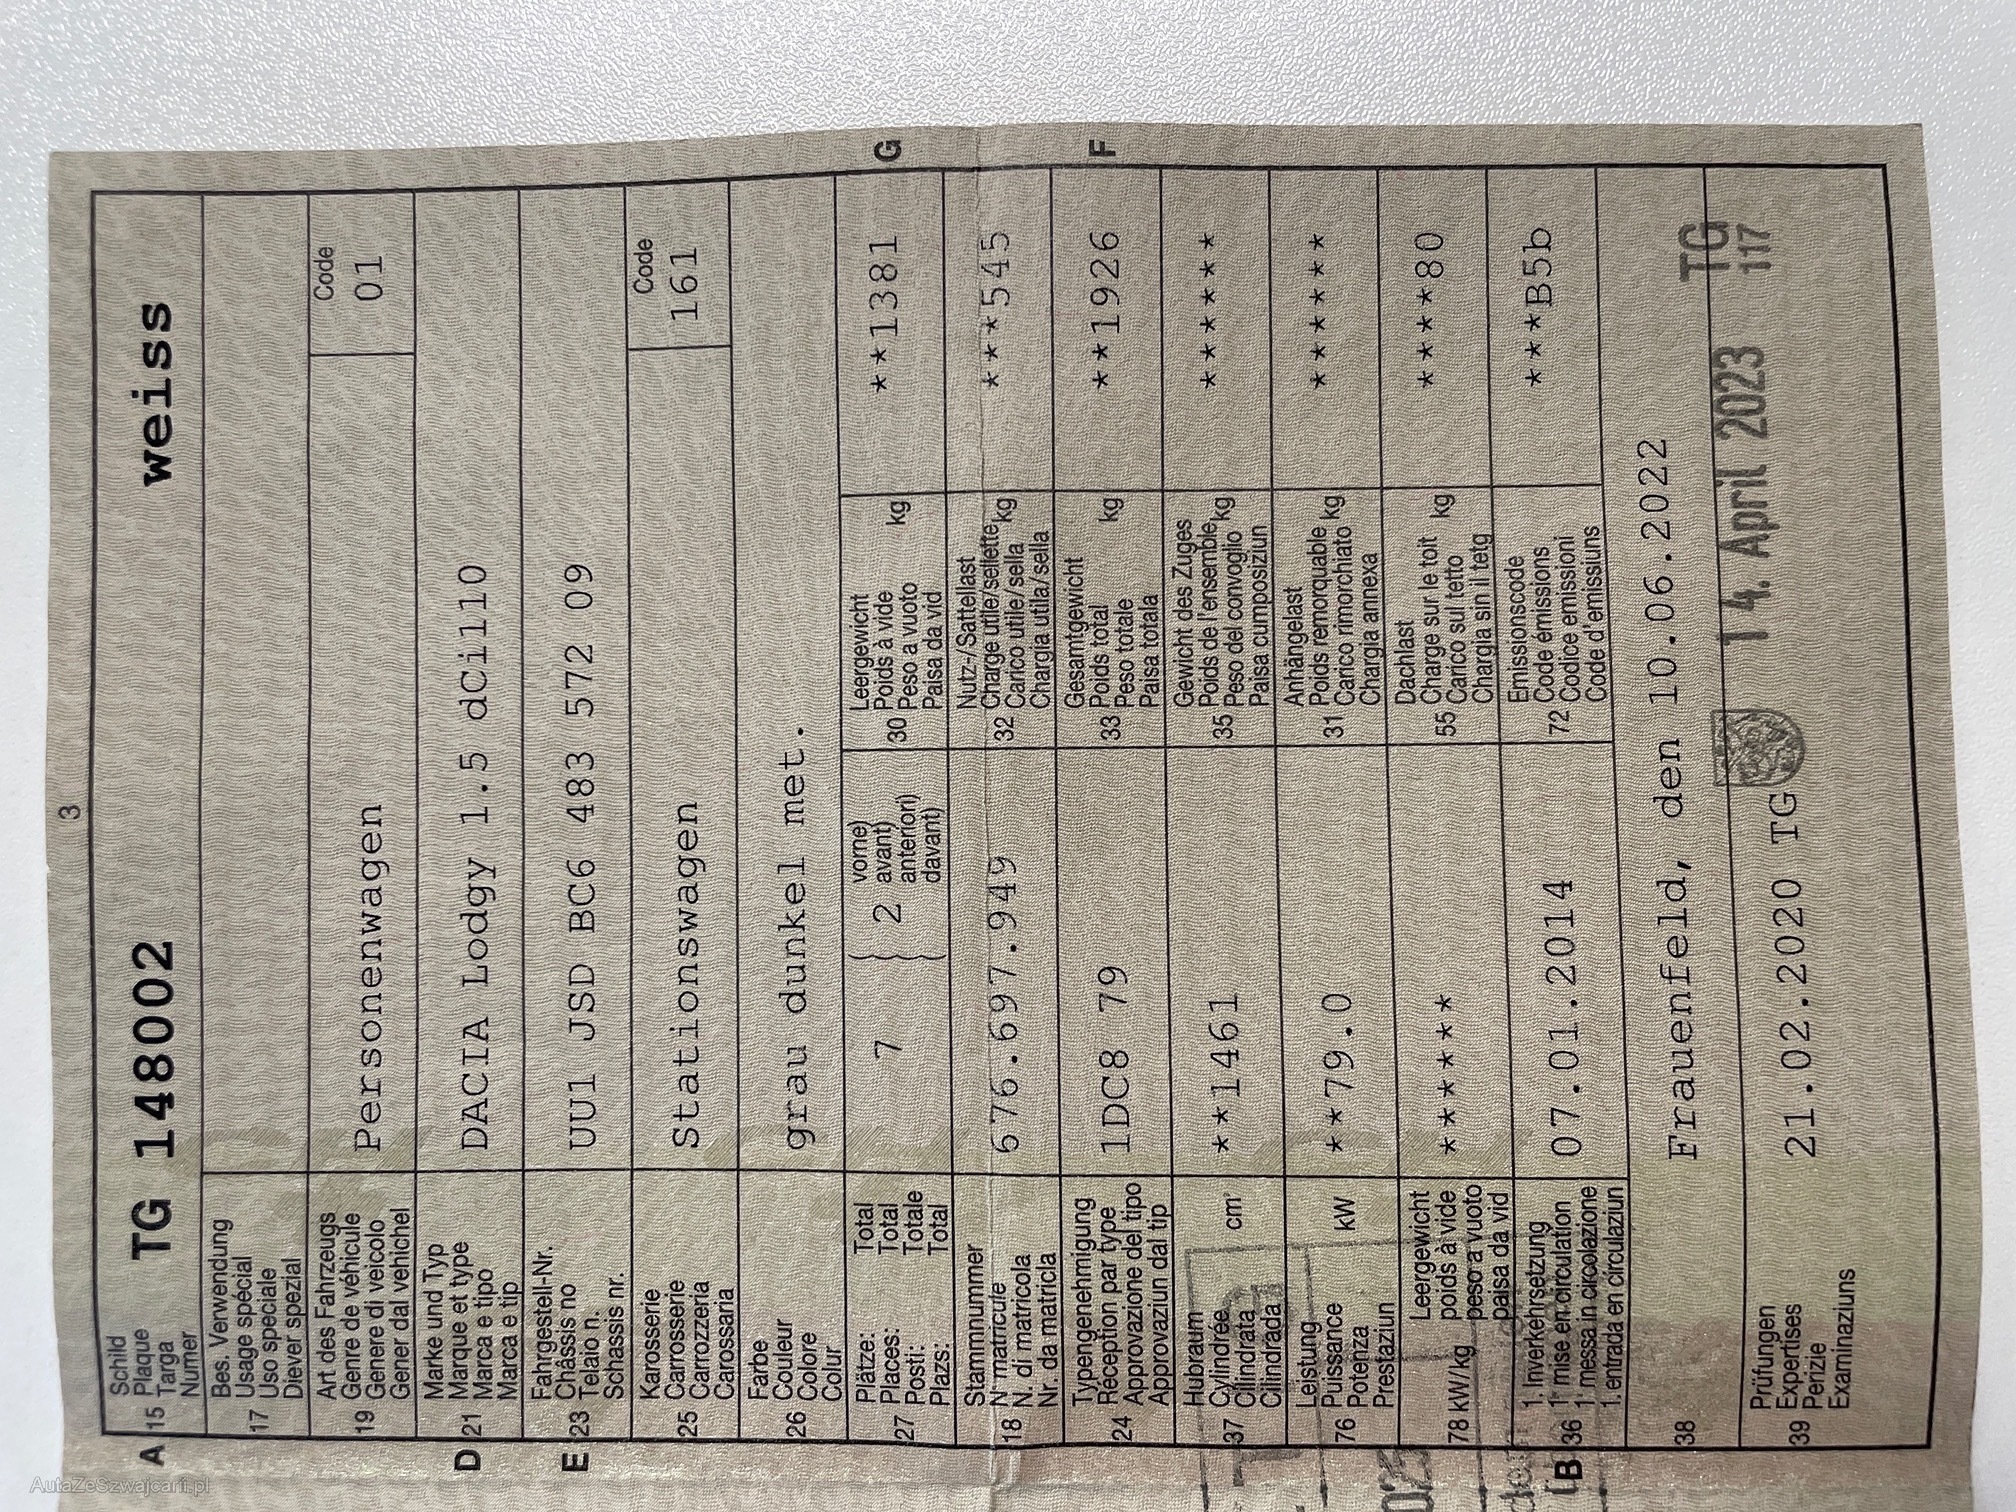 3
A 15 Schild TG 148002 weiss
Plaque
Targa
Numer
17 Bes. Verwendung
Usage spécial
Uso speciale
Diever spezial
19 Art des Fahrzeugs Personenwagen Code
Genre de véhicule 01
Genere di veicolo
Gener dal vehichel
D 21 Marke und Typ DACIA Lodgy 1.5 dCi110
Marque et type
Marca e tipo
Marca e tip
E 23 Fahrgestell-Nr. UU1 JSD BC6 483 572 09
Châssis no
Telaio n.
Schassis nr.
25 Karosserie Stationswagen Code
Carrosserie 161
Carrozzeria
Carossaria
26 Farbe grau dunkel met.
Couleur
Colore
Colur
27 Plätze: Total 7 { 2 vorne)
Places: Total avant)
Posti: Totale anteriori)
Plazs: Total davant)
30 Leergewicht kg **1381 G
Poids à vide
Peso a vuoto
Paisa da vid
18 Stammnummer 676.697.949
N° matricule
N. di matricola
Nr. da matricla
32 Nutz-/Sattellast kg ***545
Charge utile/sellette
Carico utile/sella
Chargia utila/sella
24 Typengenehmigung 1DC8 79
Réception par type
Approvazione del tipo
Approvaziun dal tip
33 Gesamtgewicht kg **1926 F
Poids total
Peso totale
Paisa totala
37 Hubraum cm³ **1461
Cylindrée
Cilindrata
Cilindrada
35 Gewicht des Zuges kg ******
Poids de l'ensemble
Peso del convoglio
Paisa cumposiziun
76 Leistung kW **79.0
Puissance
Potenza
Prestaziun
31 Anhängelast kg ******
Poids remorquable
Carico rimorchiato
Chargia annexa
78 kW/kg Leergewicht ******
poids à vide
peso a vuoto
paisa da vid
55 Dachlast kg ****80
Charge sur le toit
Carico sul tetto
Chargia sin il tetg
B 36 1. Inverkehrsetzung 07.01.2014
1re mise en circulation
1a messa in circolazione
1. entrada en circulaziun
72 Emissionscode ***B5b
Code émissions
Codice emissioni
Code d'emissiuns
38 Frauenfeld, den 10.06.2022
39 Prüfungen 21.02.2020 TG 14. April 2023 TG
Expertises 117
Perizie
Examinaziuns
AutaZeSzwajcarii.pl